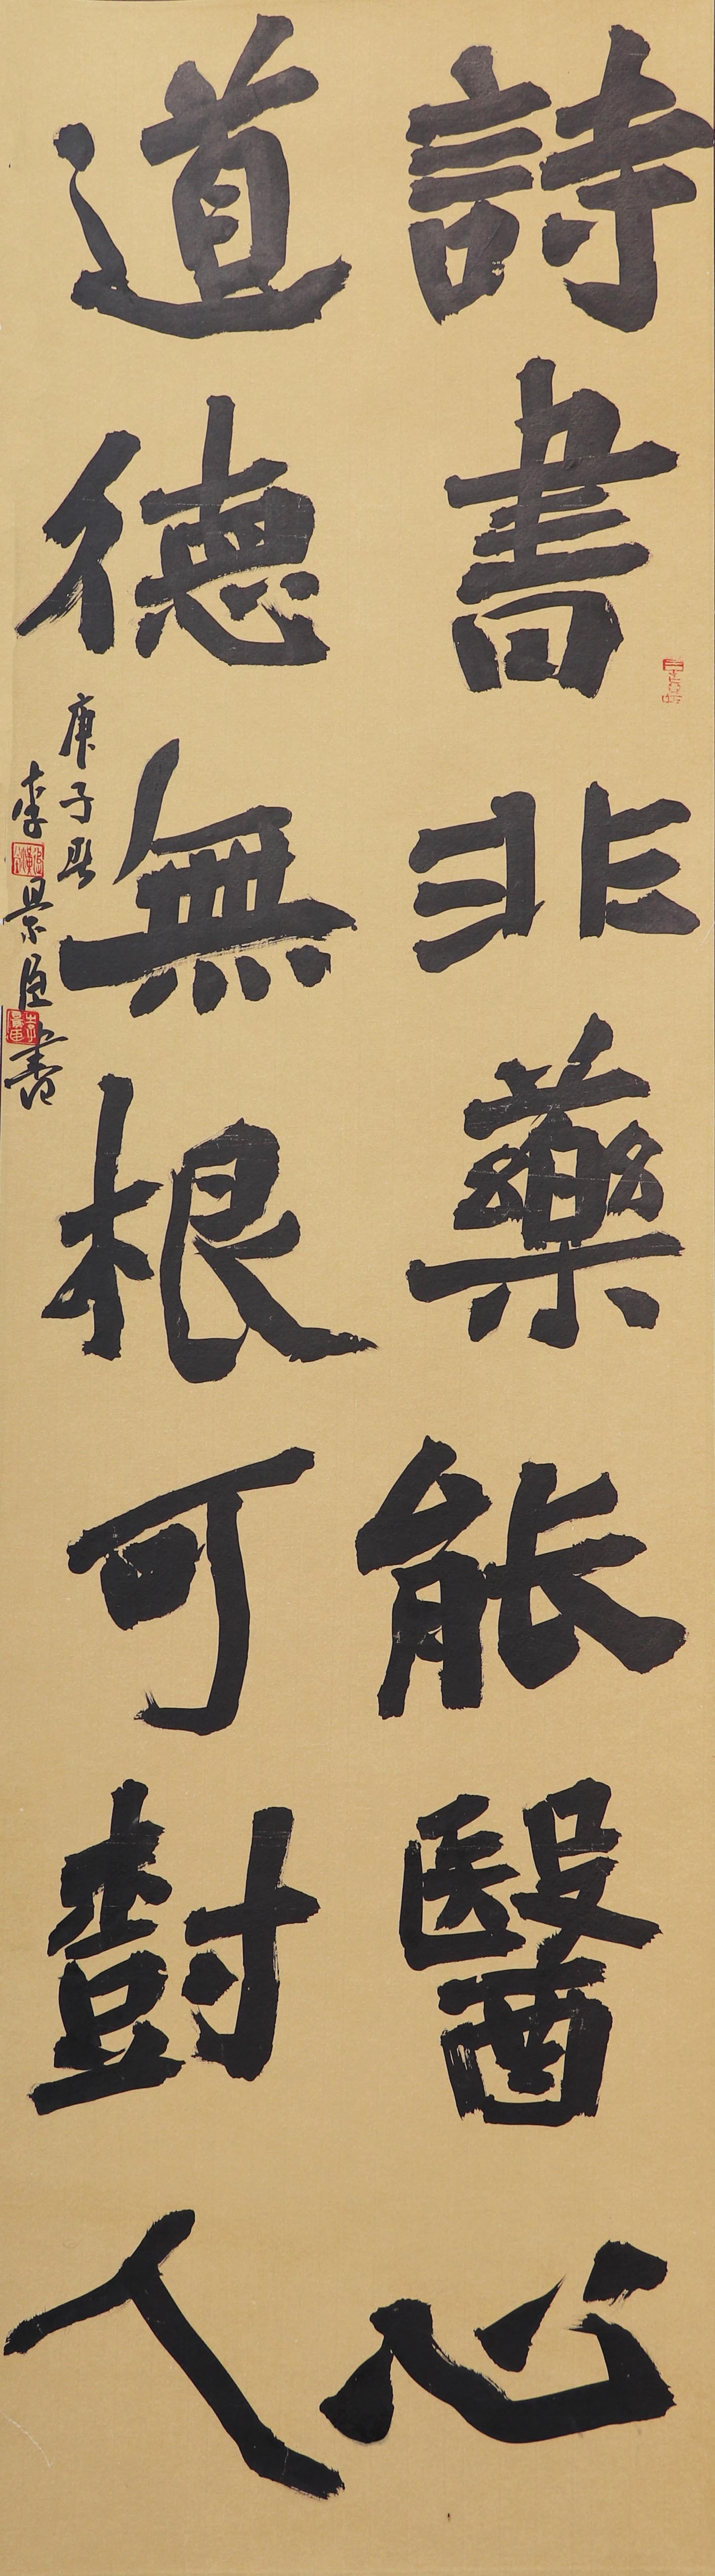 詩書非藥能醫心
道德無根可樹人
庚子春
李景臣書